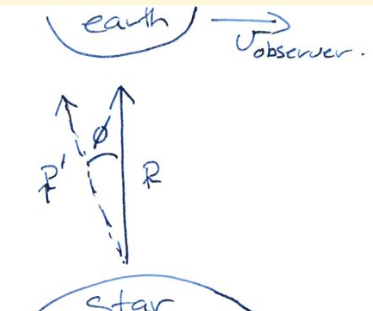 earth
Vobserver.
φ
R' R
Star